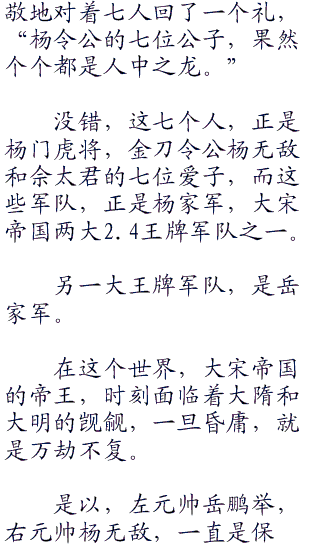 敬地对着七人回了一个礼，
“杨令公的七位公子，果然
个个都是人中之龙。”
没错，这七个人，正是
杨门虎将，金刀令公杨无敌
和佘太君的七位爱子，而这
些军队，正是杨家军，大宋
帝国两大2.4王牌军队之一。
另一大王牌军队，是岳
家军。
在这个世界，大宋帝国
的帝王，时刻面临着大隋和
大明的觊觎，一旦昏庸，就
是万劫不复。
是以，左元帅岳鹏举，
右元帅杨无敌，一直是保